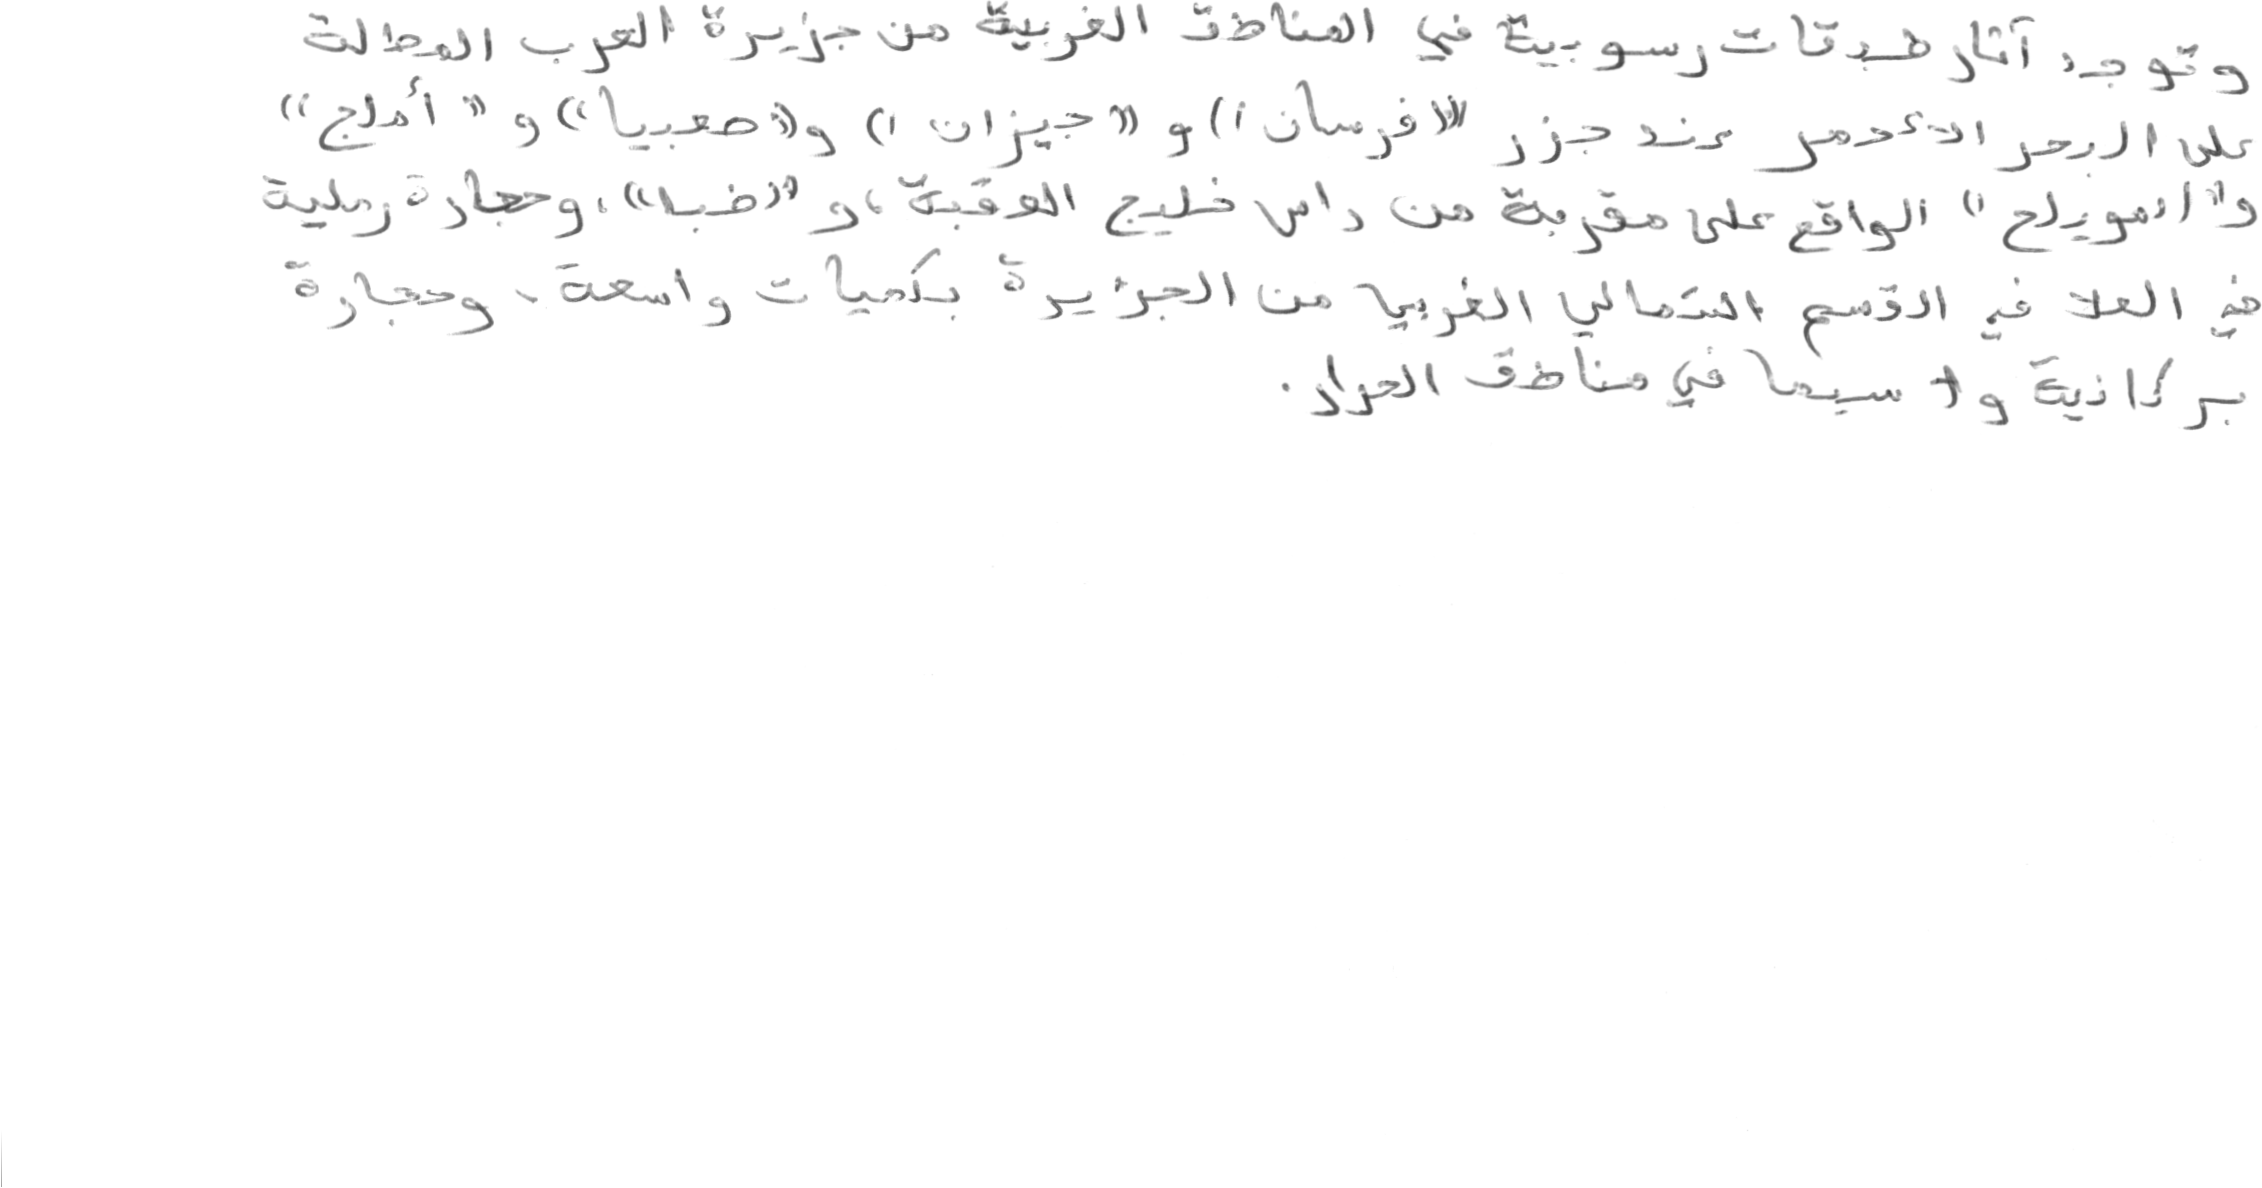 وتوجد آثار طبقات رسوبية في المناطق الغربية من جزيرة العرب المطلة
على البحر الأحمر عند جزر "فرسان" و "جيزان" و"صعبيا" و "أملج"
و"المويلح" الواقع على مقربة من راس خليج العقبة، و "ضبا"، وحجارة رملية
في العلا في القسم الشمالي الغربي من الجزيرة بكميات واسعة، وحجارة
بركانية ولا سيما في مناطق الحرار.